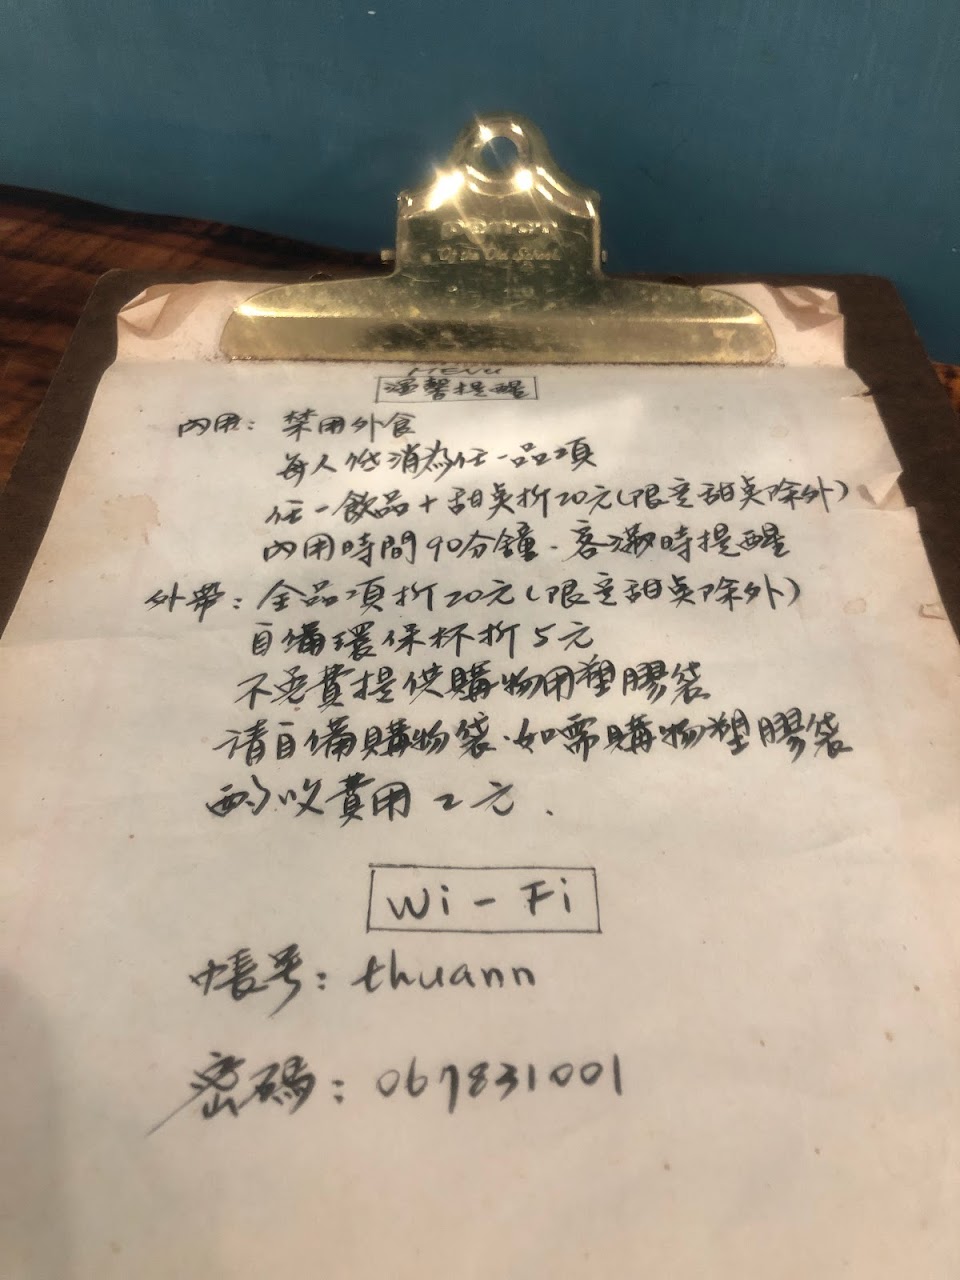 Of the Old School
MENU
溫馨提醒
內用：禁用外食
每人低消為任一品項
任一飲品+甜點折20元(限定甜點除外)
內用時間90分鐘．客滿時提醒
外帶：全品項折20元(限定甜點除外)
自備環保杯折5元
不免費提供購物用塑膠袋
請自備購物袋．如需購物塑膠袋
酌收費用2元．
Wi-Fi
帳号：thuann
密碼：067831001